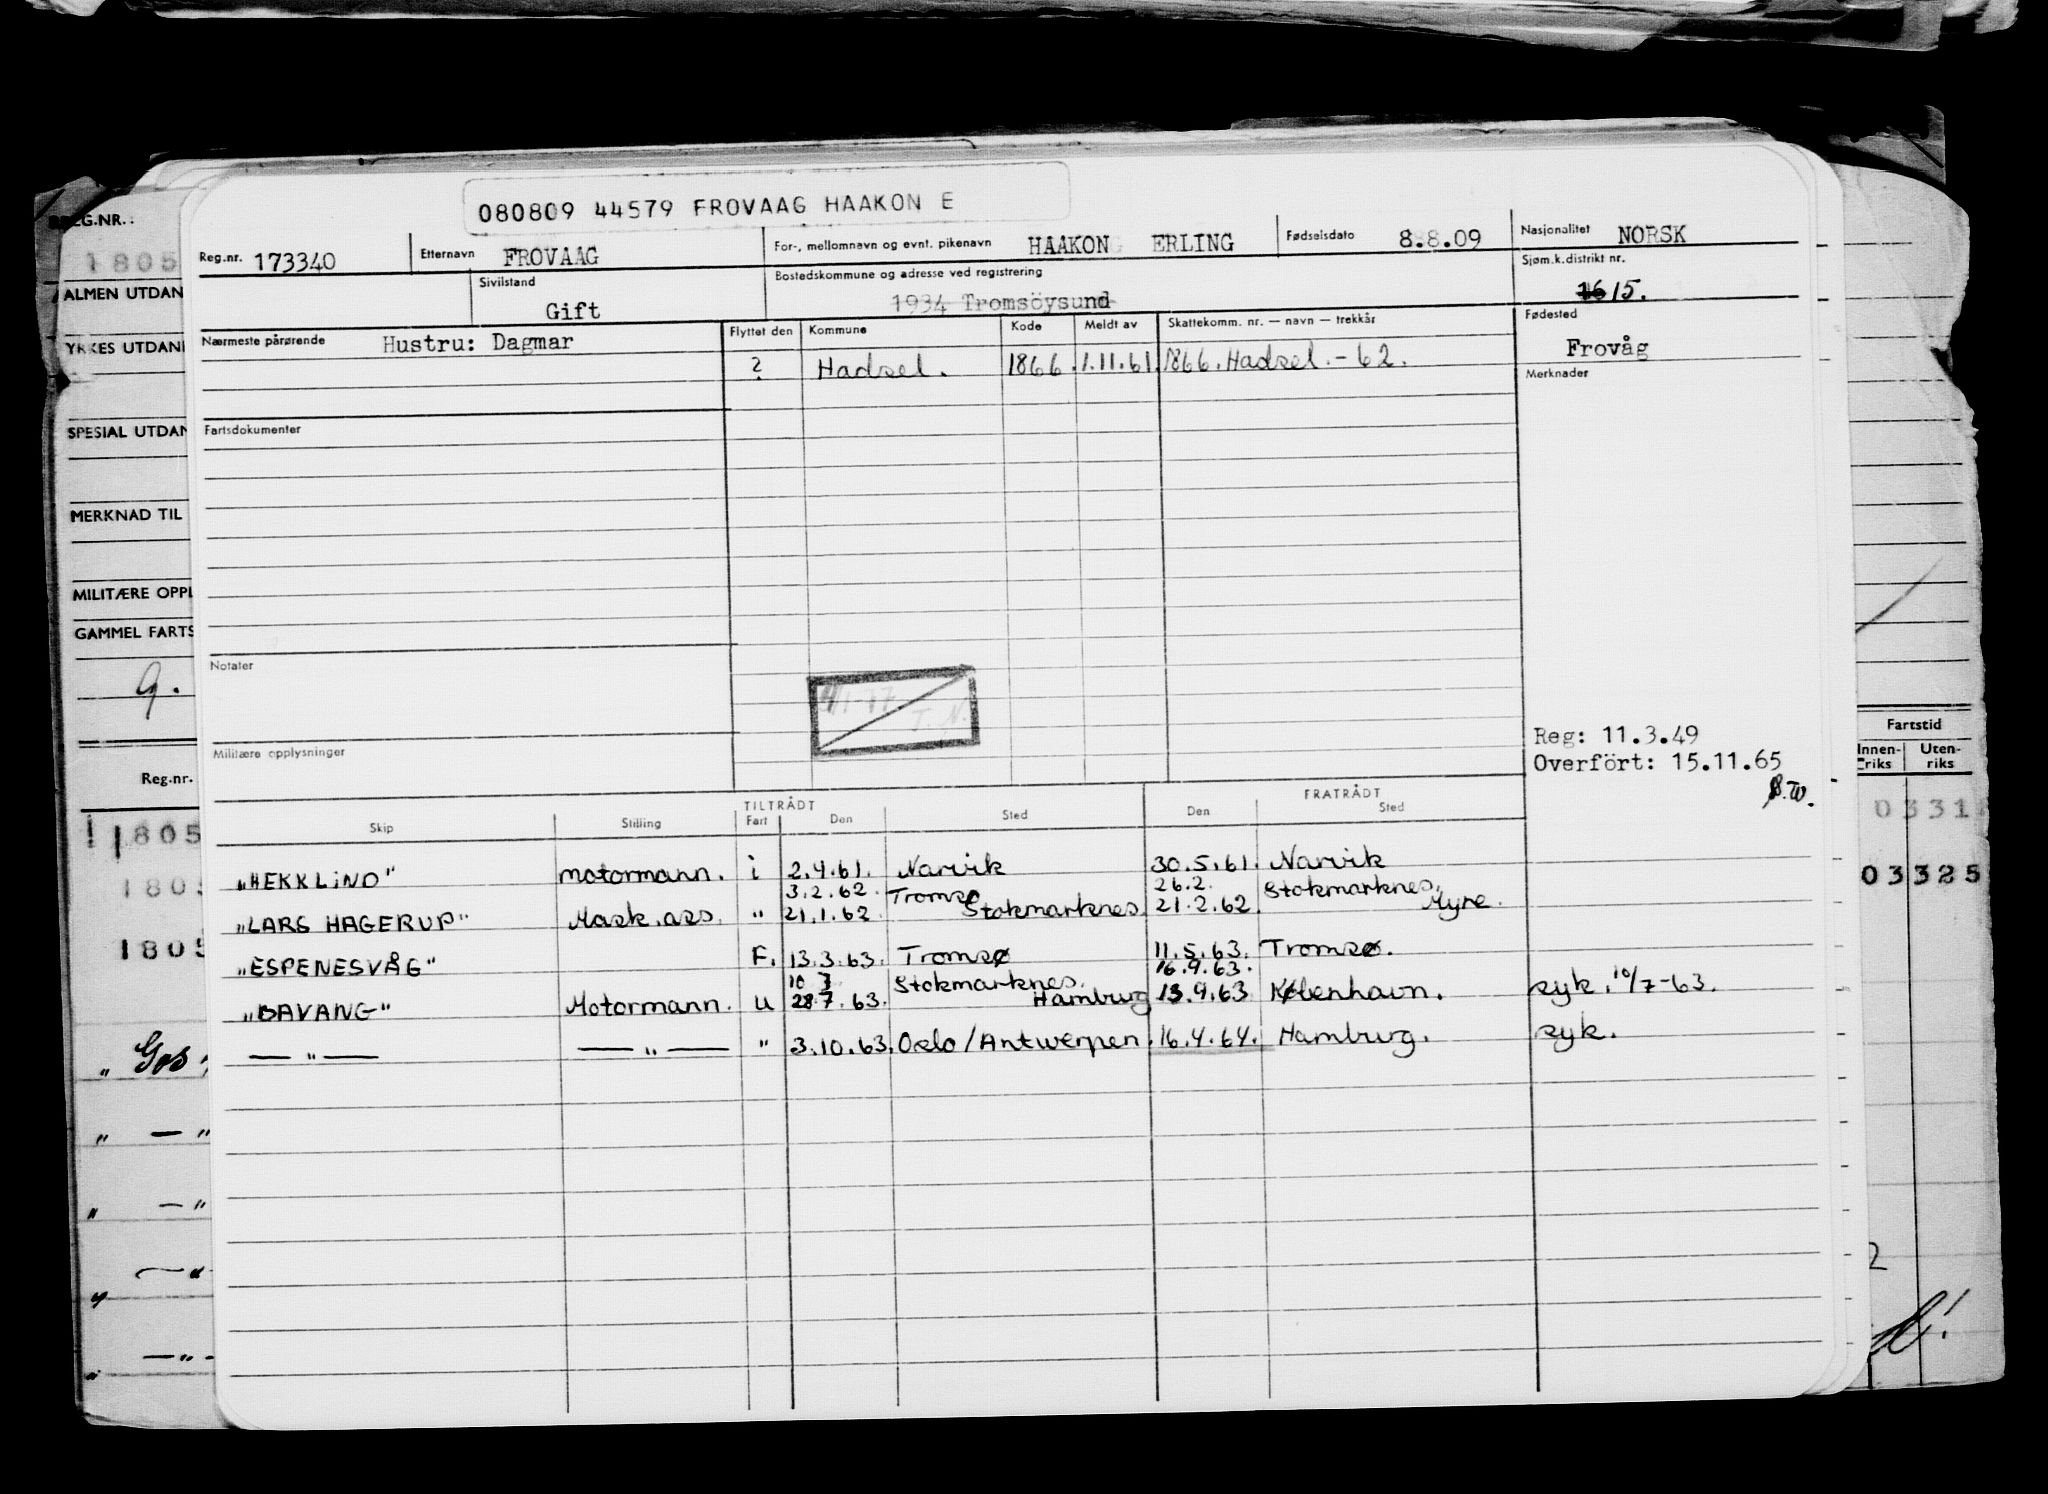 080809 44579 FROVAAG HAAKON E
Reg.nr. 173340 Etternavn FROVAAG For-, mellomnavn og evnt. pikenavn HAAKON ERLING Fødselsdato 8.8.09 Nasjonalitet NORSK
Sivilstand Gift Bostedskommune og adresse ved registrering 1934 Tromsöysund Sjøm.k.distrikt nr. 16 15.
Nærmeste pårørende Hustru: Dagmar Flyttet den Kommune Kode Meldt av Skattekomm. nr. — navn — trekkår Fødested
Frovåg
? Hadsel. 1866. 1.11.61. 1866. Hadsel. - 62.
Merknader
Fartsdokumenter
Notater
Militære opplysninger
Reg: 11.3.49
Overfört: 15.11.65
TILTRÅDT FRATRÅDT
Skip Stilling Fart Den Sted Den Sted
"HEKKLIND" motormann. i 2.4.61. Narvik 30.5.61. Narvik
3.2.62. Tromsø 26.2. Stokmarknes.
"LARS HAGERUP" Mask.ass. " 21.1.62 Stokmarknes. 21.2.62. Myre.
"ESPENESVÅG" F. 13.3.63. Tromsø 11.5.63. Tromsø.
10 7 Stokmarknes. 16.9.63.
"DAVANG" Motormann. u 28.7.63. Hamburg 13.9.63 København. syk. 10/7-63.
— " — — " — " 3.10.63. Oslo/Antwerpen. 16.4.64. Hamburg. syk.
REG.NR.:
1805
ALMEN UTDAN
YRKES UTDAN
SPESIAL UTDAN
MERKNAD TIL
MILITÆRE OPPL
GAMMEL FARTS
9.
Reg.nr.
1805
1805
1805
" Gos
" — "
" — "
Fartstid
Innenriks Utenriks
03325
2